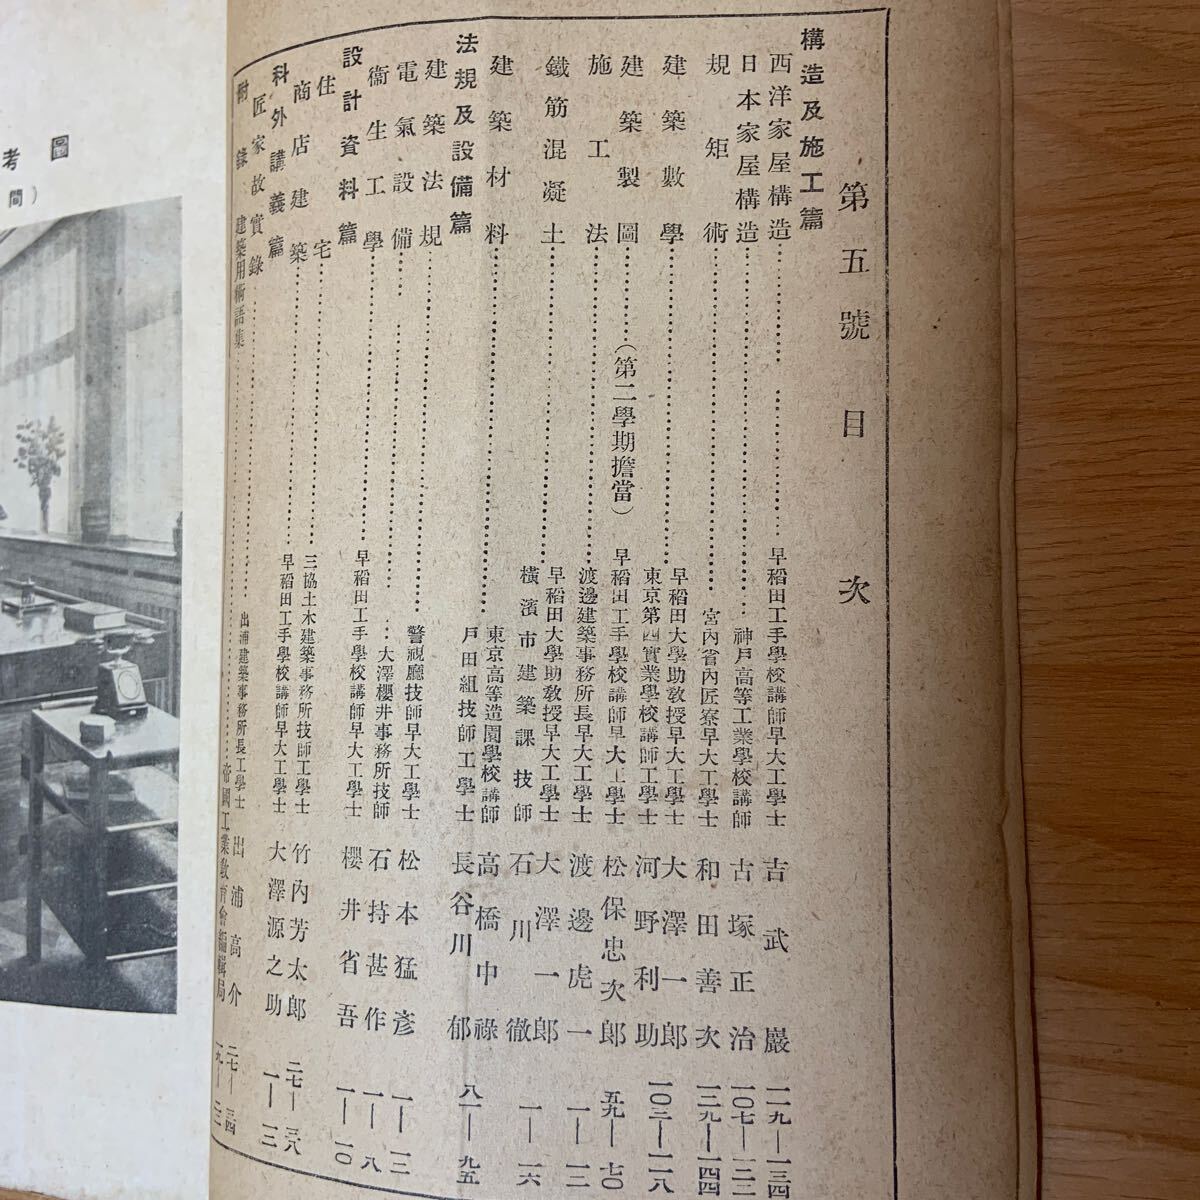 第五號目次
構造及施工篇
西洋家屋構造……早稻田工手學校講師早大工學士 吉武巖 一一九—一三四
日本家屋構造……神戶高等工業學校講師 古塚正治 一〇七—一二二
規矩術……宮內省內匠寮早大工學士 和田善次 一三九—一四四
建築數學……早稻田大學助敎授早大工學士 大澤一郎
東京第四實業學校講師工學士 河野利助 一〇三—一一八
建築製圖……(第二學期擔當)
施工法……早稻田工手學校講師早大工學士 松保忠次郎 五九—七〇
渡邊建築事務所長早大工學士 渡邊虎一 一—一二
鐵筋混凝土……早稻田大學助敎授早大工學士 大澤一郎
橫濱市建築課技師 石川徹 一—一六
建築材料……東京高等造園學校講師 高橋中祿
戶田組技師工學士 長谷川郁 八一—九五
法規及設備篇
建築法規……警視廳技師早大工學士 松本猛彥 一—一二
電氣設備……大澤櫻井事務所技師 石持甚作 一—八
衞生工學……早稻田工手學校講師早大工學士 櫻井省吾 一—一〇
設計資料篇
住宅……三協土木建築事務所技師工學士 竹內芳太郎 二七—三八
商店建築……早稻田工手學校講師早大工學士 大澤源之助 一—一三
科外講義篇
匠家故實錄……出浦建築事務所長工學士 出浦高介 二七—三四
附錄 建築用術語集……帝國工業敎育會編輯局
考圖
間)